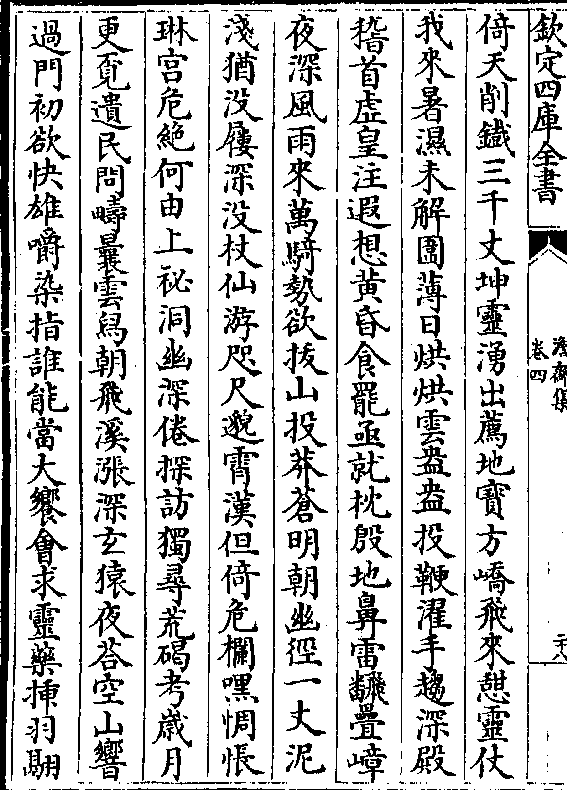 欽定四庫全書
澹齋集
卷四
倚天削鐡三千丈坤靈湧出薦地寶方嶠飛來憇靈仗
我來暑濕未解圍薄日烘烘雲盎盎投鞭濯手趨深殿
稽首虚皇注遐想黄昏食罷亟就枕殷地鼻雷飜疊嶂
夜深風雨來萬騎勢欲拔山投莽蒼明朝幽徑一丈泥
淺猶没屨深没杖仙游咫尺邈霄漢但倚危欄嘿惆悵
琳宫危絶何由上祕洞幽深倦探訪獨尋荒碣考歳月
更覓遺民問疇曩雲舄朝飛溪漲深玄猿夜答空山響
過門初欲快雄嚼染指誰能當大饗會求靈藥揷羽